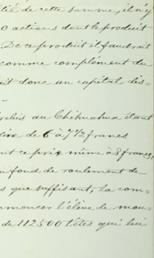 tié de cette somme, il n'y
0 actions dont le produit
De ce produit il faudrait
comme complément du
ait donc un capital dis-
relies au Chihuahua étant
de 6 à 7 1/2 francs
ce prix même à 8 francs,
fonds de roulement de
que suffisant. Le com-
mmencer l'élève de mou-
de 112500 têtes qui lui